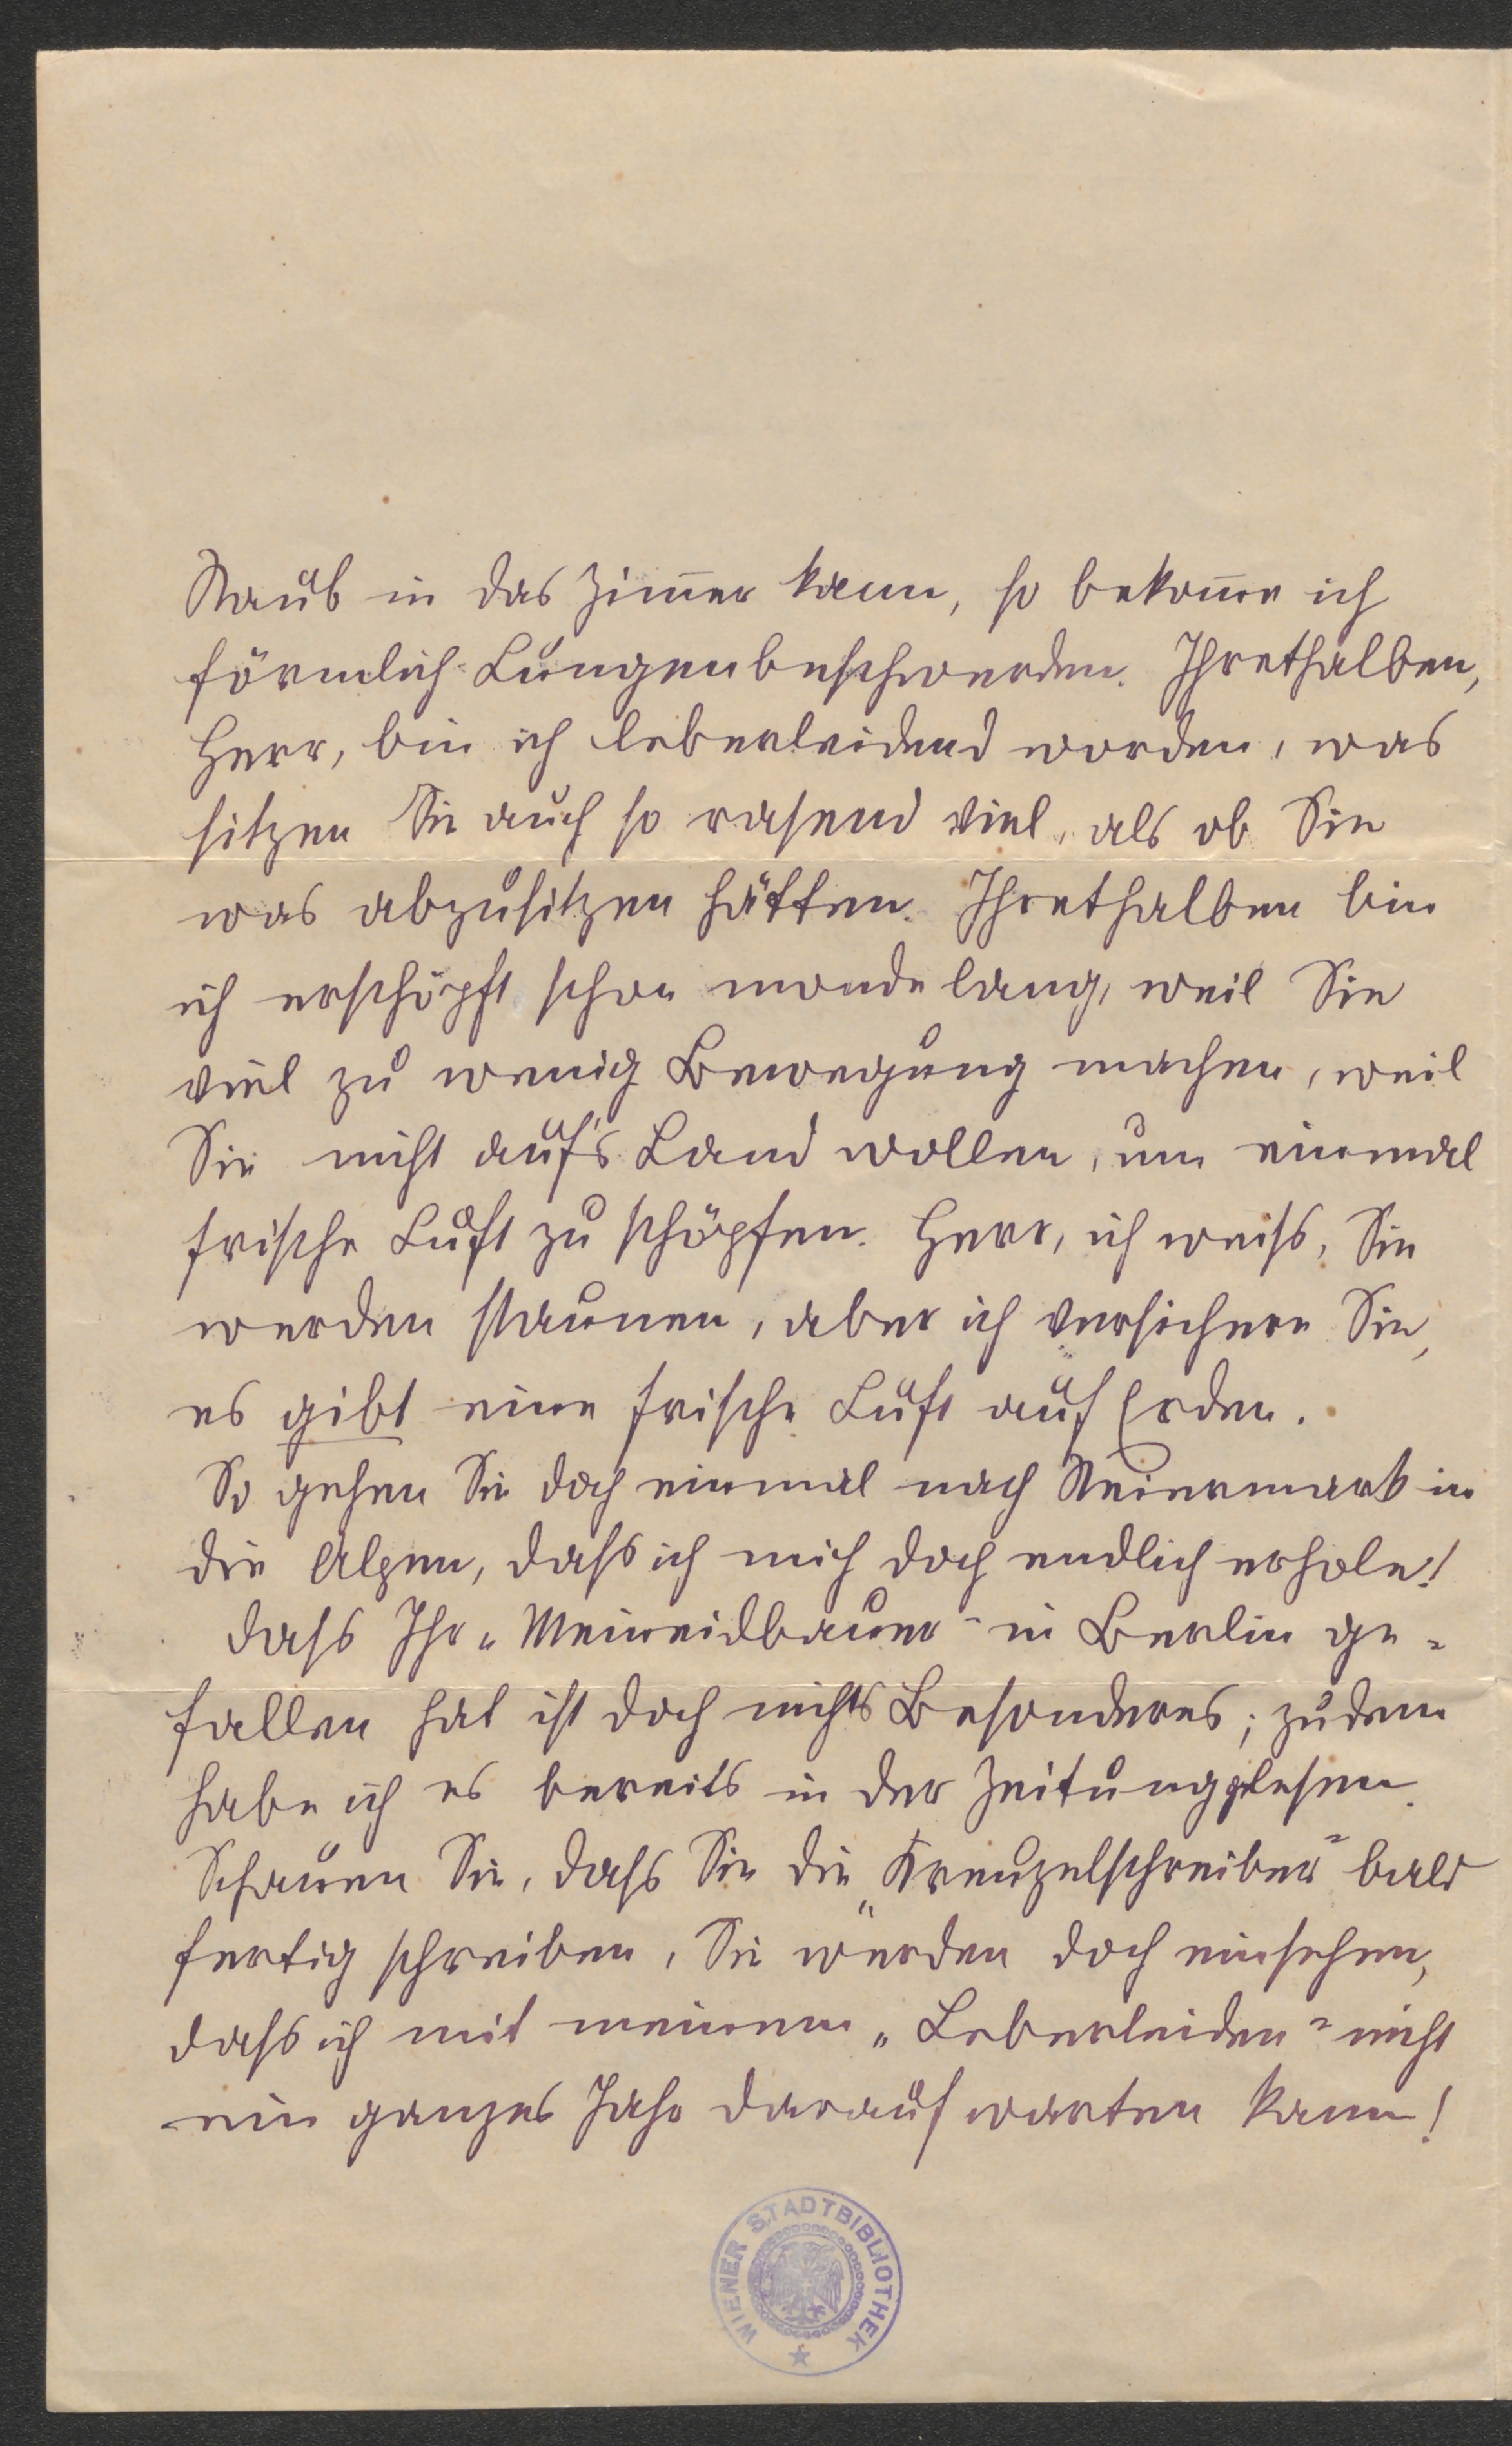 Staub in das Zim̅er kam, so bekom̅e ich
förmlich Lungenbeschwerden. Ihrethalben,
Herr, bin ich leberleidend worden, was
sitzen Sie auch so rasend viel, als ob Sie
was abzusitzen hätten. Ihrethalben bin
ich erschöpft schon monde lang, weil Sie
viel zu wenig Bewegung machen, weil
Sie nicht auf's Land wollen, um einmal
frische Luft zu schöpfen. Herr, ich weiss, Sie
werden staunen, aber ich versichere Sie,
es gibt eine frische Luft auf Erden.
So gehen Sie doch einmal nach Steiermark in
die Alpen, dass ich mich doch endlich erhole!
Dass Ihr „Meineidbauer“ in Berlin ge-
fallen hat ist doch nichts Besonderes; zudem
habe ich es bereits in der Zeitung gelesen.
Schauen Sie, dass Sie die „Kreuzelschreiber“ bald
fertig schreiben, Sie werden doch einsehen,
dass ich mit meinem „Leberleiden“ nicht
ein ganzes Jahr darauf warten kann!
WIENER STADTBIBLIOTHEK